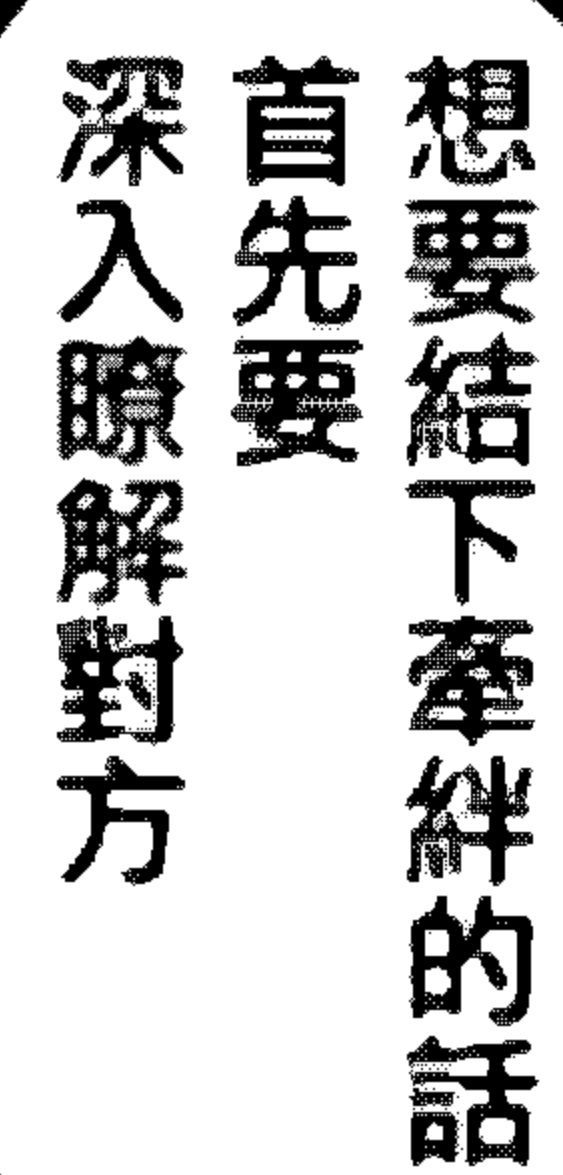 想要結下牽絆的話
首先要
深入瞭解對方